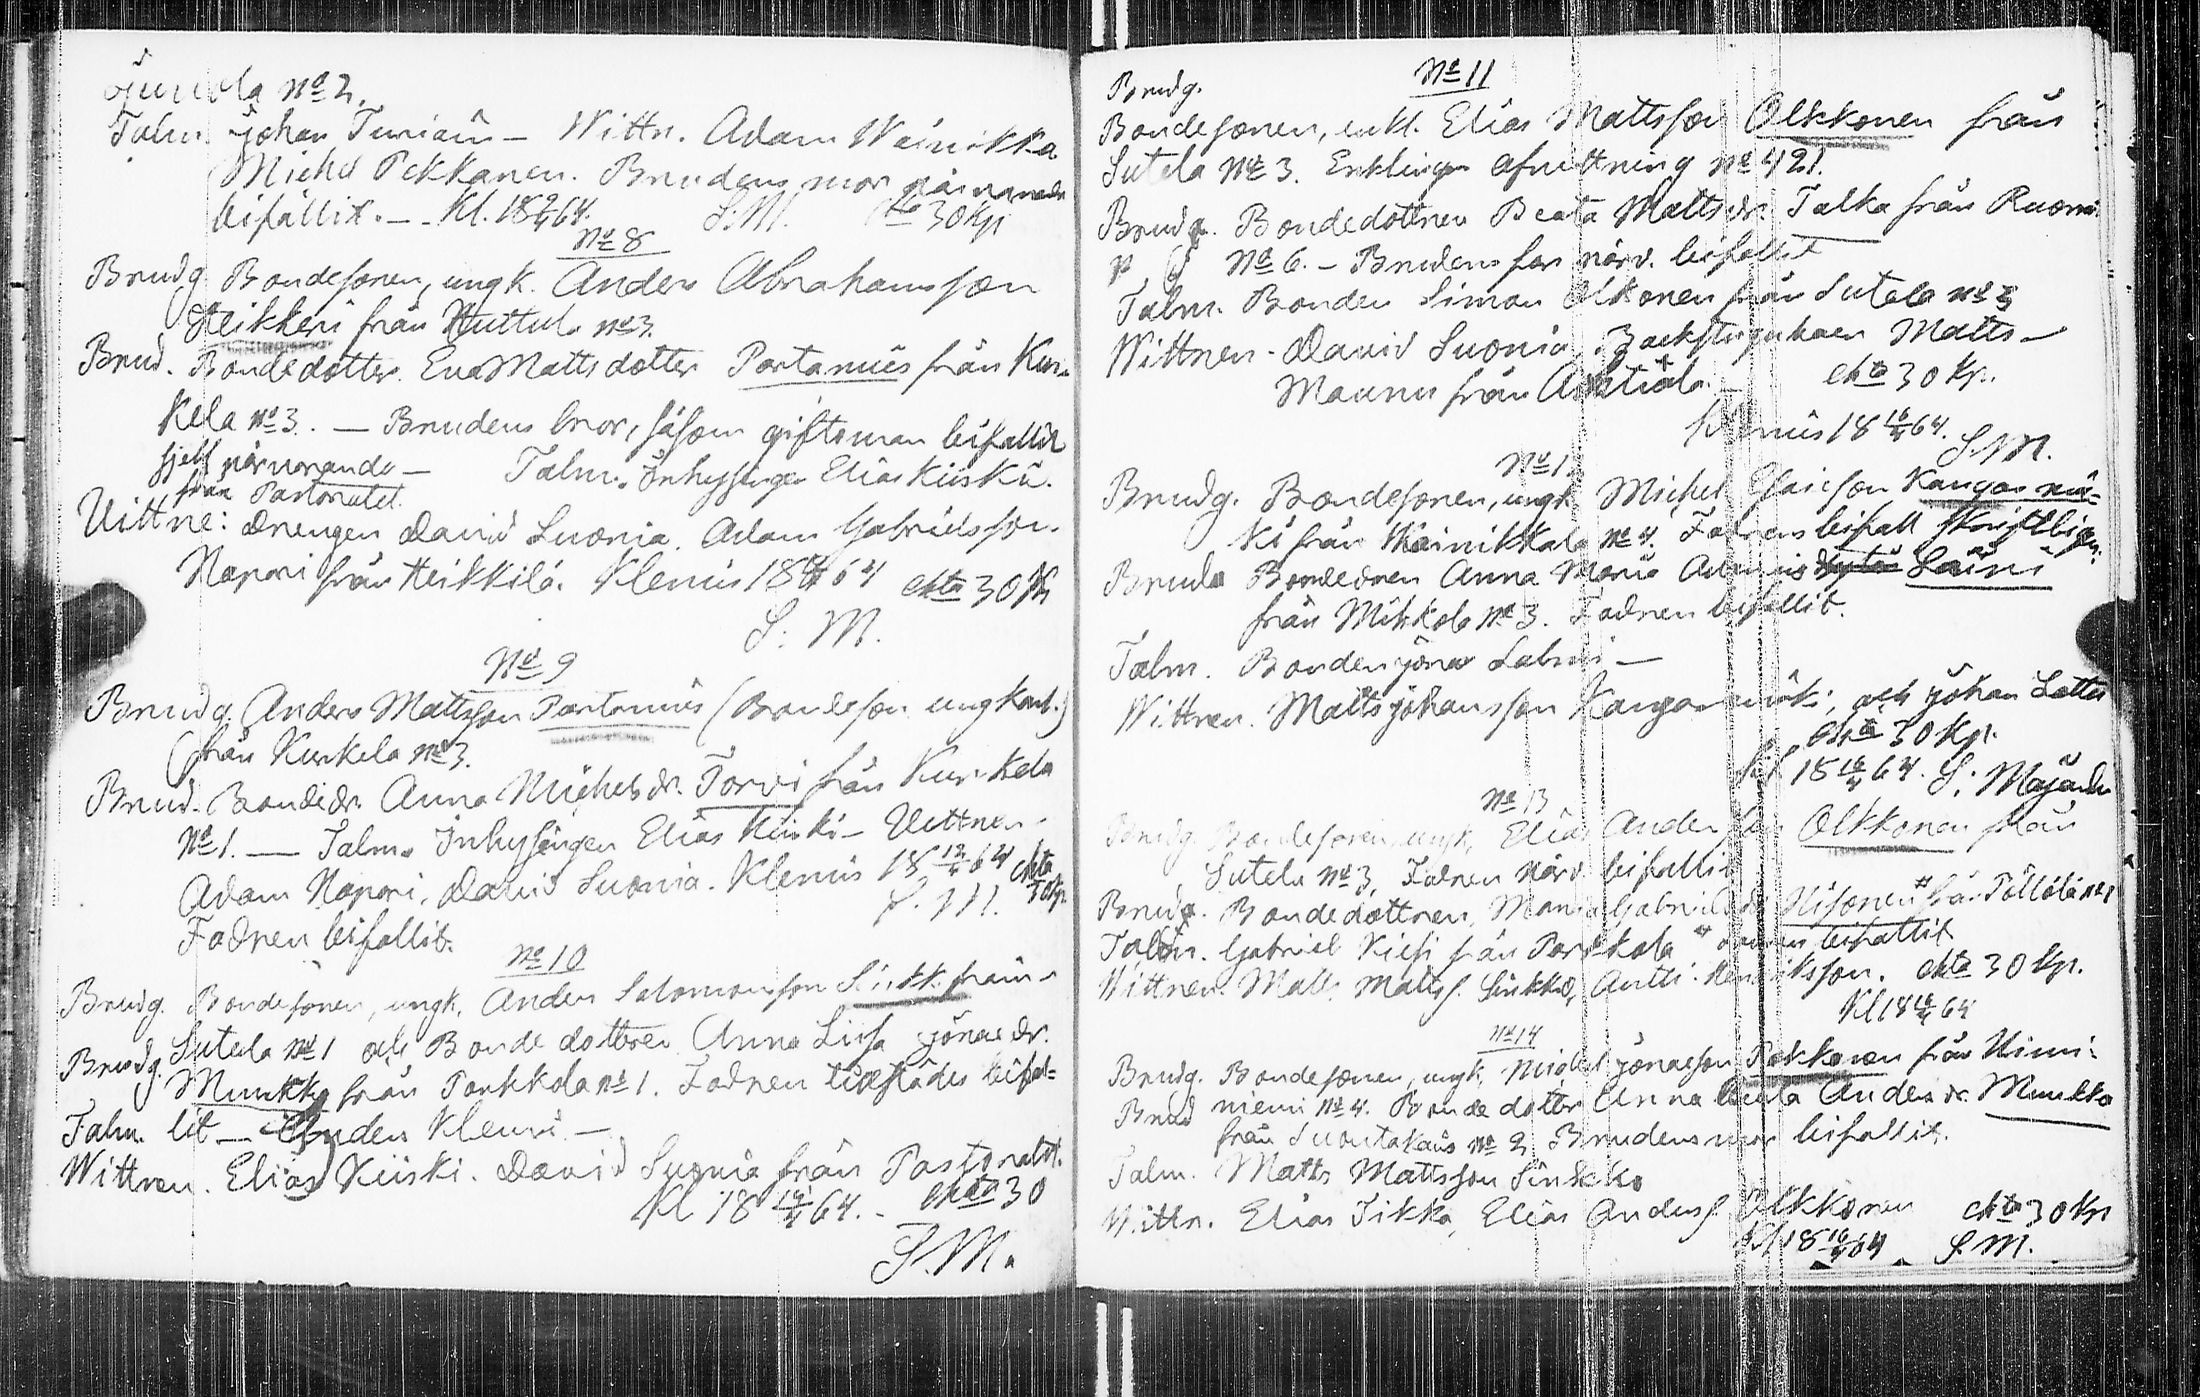 No 2.
Talm. Johan Turiain - Wittn. Adam Wäinikka
Michel Pekkanen. Brudens mor närvarande
bifallit. - Kl. 18 9/4 64. S. M. 30 Kp
No 8
Brudg Bondesonen, ungk. Anders Abrahamsson
Heikkeri från Huttula No 3.
Brud. Bondedotter Eva Mattsdotter Partanus från Kur-
kela No 3. - Brudens bror, såsom giftoman bifallit
sjelf närvarande - Talm. Inhysingen Elias Kiiski.
från Pastoratet.
Vittne: Drengen David Suonia. Adam Gabrielsson
Napari från Heikkilä. Klemis 18 64 chta 30 Kp
S. M.
No 9
Brudg. Anders Mattsson Partanus (Bondeson ungkarl.)
från Kurkela No 3.
Brud. Bondedr. Anna Michelsdr. Torvi från Kurkela
No 1. - Talm. Inhysingen Elias Kiiski - Vittnen
Adam Napari, David Suonia. Klemis 18 12/4 64 chta
S. M. 30 Kp.
Fadren bifallit.
No 10
Brudg. Bondesonen, ungk. Anders Salomonsson Sinkk. från
Brudg. Sutela No 1 och Bondedottren Anna Lisa Jönasdr.
Munkko från Parkkola No 1. Fadren tillstädes bifal-
Talm. lit - Anders Klemi -
Wittnen. Elias Kiiski. David Suonia från Pastoratet.
Kl 18 64. - chta 30
S. M.
No 11
Brudg.
Bondesonen, enkl. Elias Mattsson Olkkonen från
Sutela No 3. Enklingen afvittning No 421.
Brud. Bondedottren Beata Mattsdr. Talka från Ruoni
No 6. - Brudens far närv. bifallit
Talm. Bonden Simon Olkonen från Sutela No 3
Wittnen - David Suonia, Backstuguhaen Matts -
Maunu från chta 30 Kp.
Klemis 18 16/4 64. S. M.
No 1
Brudg. Bondesonen, ungk. Michel Esaiesson Kangas mä-
ki från Wäinikkala No 4. Fadrens bifall skriftligen.
Brud Bondedren Anna Maria Adams Laini
från Mihkola No 3. Fadren bifallit.
Talm. Bonden Jönas Salmi -
Wittnen. Matts Johansson Kangasmäki, och Johan Latto
chta 30 Kp.
Kl 18 16/4 64. S. Majander
No 13
Brudg. Bondesonen, ungk. Elias Andersson Olkkonen från
Sutela No 3, Fadren närv. bifallit
Brud. Bondedottren, Maria Gabrielsdr. Hifonen från Pöllölä No 1
Talm. Gabriel Kiesi från Parkkola Fadren bifallit
Wittnen. Matts Mattss. Sinkko, Antti Henriksson. chta 30 Kp.
Kl 18 16/4 64
No 14
Brudg. Bondesonen, ungk. Michel Jönasson Pekkanen från Niini-
Brud niemi No 4. Bondedotter Anna Beata Andersdr. Munkko
från Suontakais No 2 Brudens mor bifallit.
Talm. Matts Mattsson Sinkko
Wittn. Elias Tikka, Elias Anderss. Olkkonen chta 30 Kp
Kl 18 16/4 64 S. M.